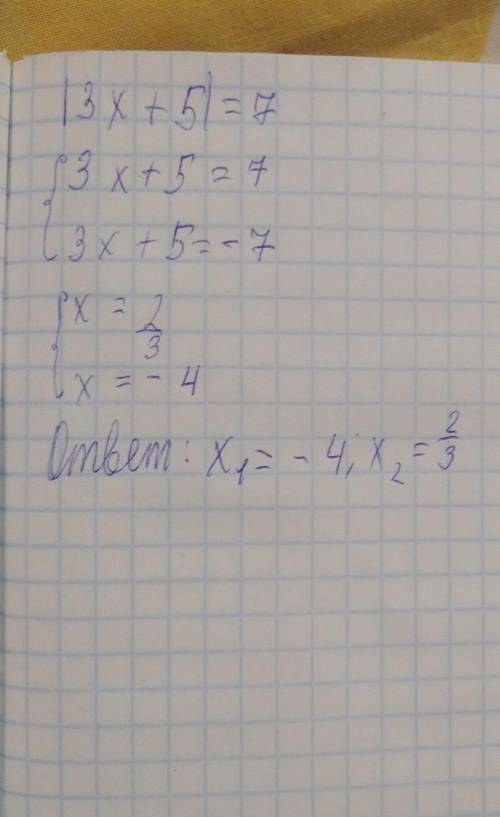 |3x+5|=7
{3x+5=7
3x+5=-7
{x=2/3
x=-4
Ответ: x₁=-4; x₂=2/3